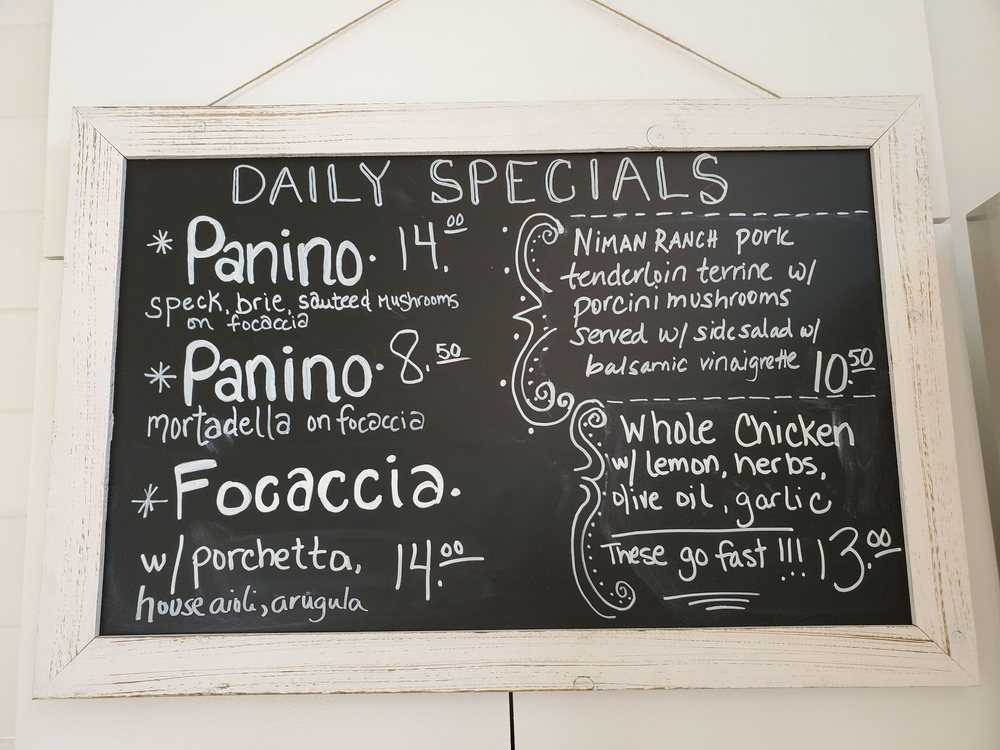 DAILY SPECIALS
* Panino. 14.00
speck, brie, sauteed mushrooms
on focaccia
* Panino. 8.50
mortadella on focaccia
* Focaccia.
w/ porchetta, 14.00
house aioli, arugula
NIMAN RANCH pork
tenderloin terrine w/
porcini mushrooms
served w/ side salad w/
balsamic vinaigrette 10.50
Whole Chicken
w/ lemon, herbs,
olive oil, garlic
These go fast!!! 13.00